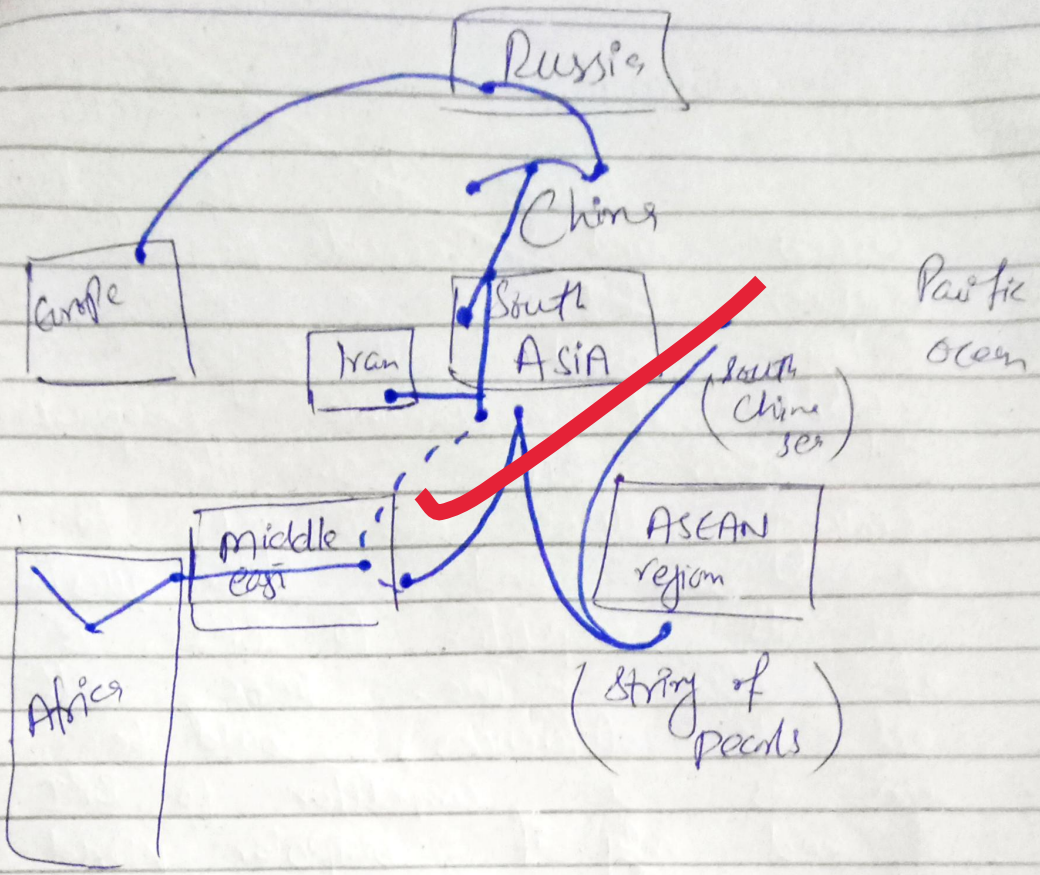 Russia
China
Europe
South
ASIA
Iran
Pacific
ocean
(South
China
sea)
Middle
east
ASEAN
region
Africa
(String of
pearls)